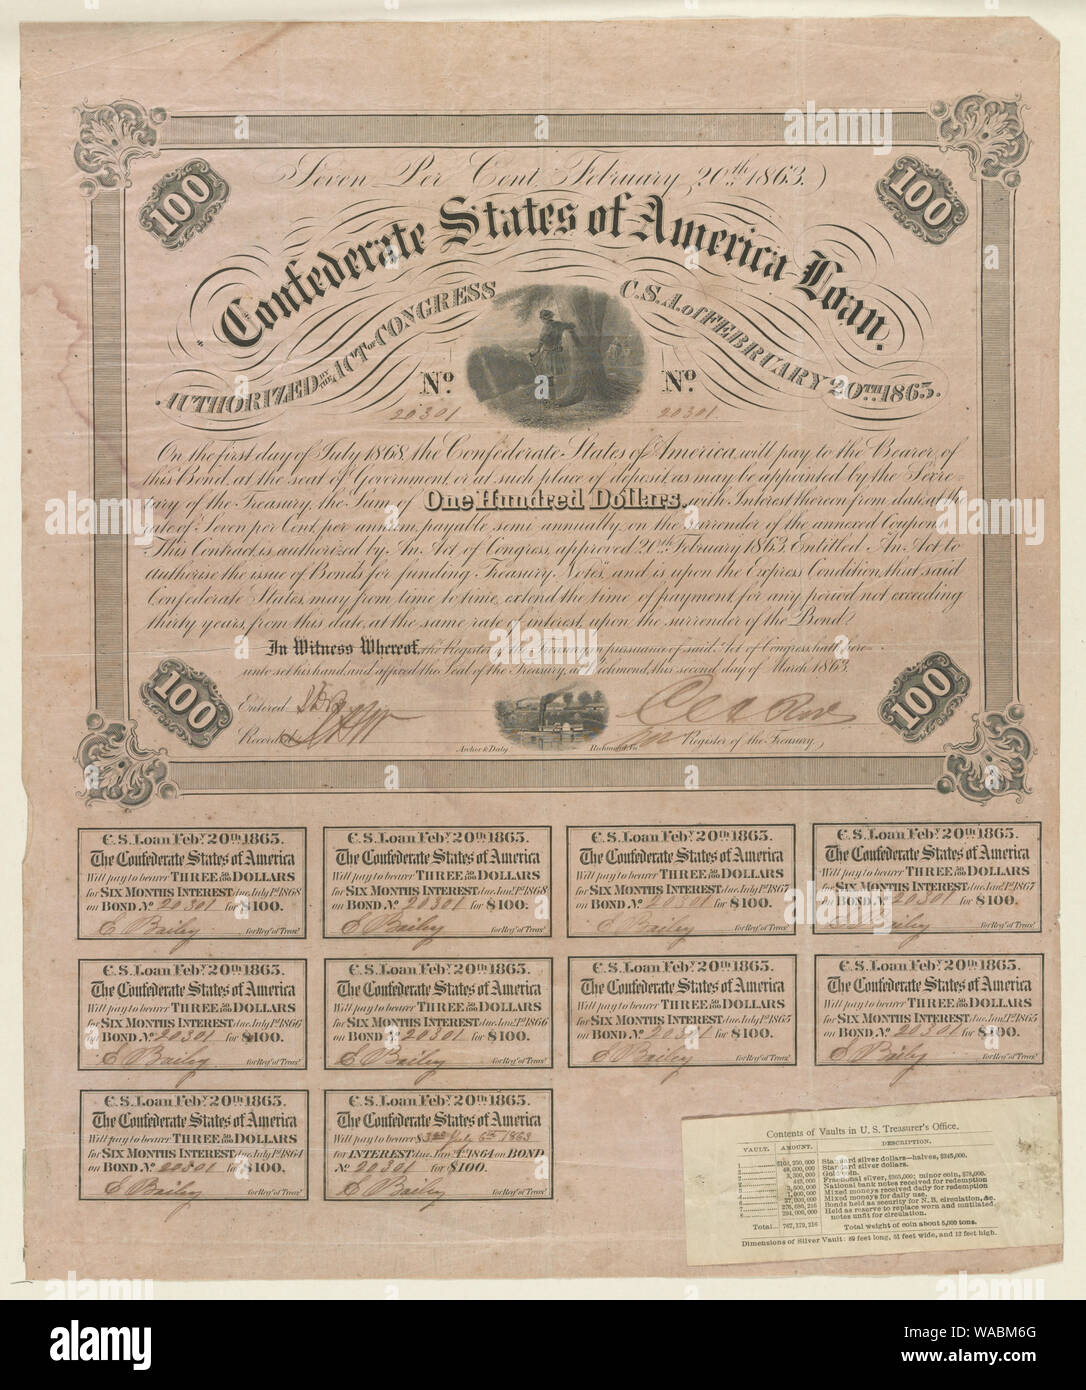 Seven Per Cent, February 20th 1863.
100
100
Confederate States of America Loan.
AUTHORIZED BY THE ACT OF CONGRESS C.S.A. of FEBRUARY 20TH 1863.
No. 20301 No. 20301
On the first day of July 1868, the Confederate States of America, will pay to the Bearer, of
this Bond, at the seat of Government, or at such place of deposit, as may be appointed by the Secre-
tary of the Treasury, the Sum of One Hundred Dollars. with Interest thereon from date at the
rate of Seven per Cent, per annum, payable semi annually, on the surrender of the annexed Coupon.
This Contract, is authorized by An Act of Congress, approved 20th February 1863. Entitled "An Act to
authorise the issue of Bonds for funding Treasury Notes," and is upon the Express Condition, that said
Confederate States, may from time to time, extend the time of payment, for any period not exceeding
thirty years, from this date, at the same rate of interest, upon the surrender of the Bond.
In Witness Whereof, the Register of the Treasury, in pursuance of said Act of Congress, hath here-
unto set his hand, and affixed the Seal of the Treasury, at Richmond, this second day of March 1863.
100
100
Entered
Recorded
Register of the Treasury
Archer & Daly Richmond, Va.
C.S. Loan Feby. 20TH 1863.
The Confederate States of America
Will pay to bearer THREE 50/100 DOLLARS
for SIX MONTHS INTEREST due July 1st 1868
on BOND No. 20301 for $100.
E Bailey for Regr. of Treasy.
C.S. Loan Feby. 20TH 1863.
The Confederate States of America
Will pay to bearer THREE 50/100 DOLLARS
for SIX MONTHS INTEREST due Jany. 1st 1868
on BOND No. 20301 for $100.
E Bailey for Regr. of Treasy.
C.S. Loan Feby. 20TH 1863.
The Confederate States of America
Will pay to bearer THREE 50/100 DOLLARS
for SIX MONTHS INTEREST due July 1st 1867
on BOND No. 20301 for $100.
E Bailey for Regr. of Treasy.
C.S. Loan Feby. 20TH 1863.
The Confederate States of America
Will pay to bearer THREE 50/100 DOLLARS
for SIX MONTHS INTEREST due Jany. 1st 1867
on BOND No. 20301 for $100.
E Bailey for Regr. of Treasy.
C.S. Loan Feby. 20TH 1863.
The Confederate States of America
Will pay to bearer THREE 50/100 DOLLARS
for SIX MONTHS INTEREST due July 1st 1866
on BOND No. 20301 for $100.
E Bailey for Regr. of Treasy.
C.S. Loan Feby. 20TH 1863.
The Confederate States of America
Will pay to bearer THREE 50/100 DOLLARS
for SIX MONTHS INTEREST due Jany. 1st 1866
on BOND No. 20301 for $100.
E Bailey for Regr. of Treasy.
C.S. Loan Feby. 20TH 1863.
The Confederate States of America
Will pay to bearer THREE 50/100 DOLLARS
for SIX MONTHS INTEREST due July 1st 1865
on BOND No. 20301 for $100.
E Bailey for Regr. of Treasy.
C.S. Loan Feby. 20TH 1863.
The Confederate States of America
Will pay to bearer THREE 50/100 DOLLARS
for SIX MONTHS INTEREST due Jany. 1st 1865
on BOND No. 20301 for $100.
E Bailey for Regr. of Treasy.
C.S. Loan Feby. 20TH 1863.
The Confederate States of America
Will pay to bearer THREE 50/100 DOLLARS
for SIX MONTHS INTEREST due July 1st 1864
on BOND No. 20301 for $100.
E Bailey for Regr. of Treasy.
C.S. Loan Feby. 20TH 1863.
The Confederate States of America
Will pay to bearer $ July 6th 1863
for INTEREST due Jany. 1st 1864 on BOND
No. 20301 for $100.
E Bailey for Regr. of Treasy.
Contents of Vaults in U. S. Treasurer's Office.
VAULT. AMOUNT. DESCRIPTION.
Standard silver dollars—halves, $245,000.
Standard silver dollars.
Gold coin.
Fractional silver, minor coin,
National bank notes received for redemption
Mixed moneys received daily for redemption
Mixed moneys for daily use.
Bonds held as security for N. B. circulation, &c.
Held as reserve to replace worn and mutilated
notes unfit for circulation.
Total... 767,179,216 Total weight of coin about 5,000 tons.
Dimensions of Silver Vault: 89 feet long, 51 feet wide, and 12 feet high.
alamy
Image ID: WABM6G
www.alamy.com